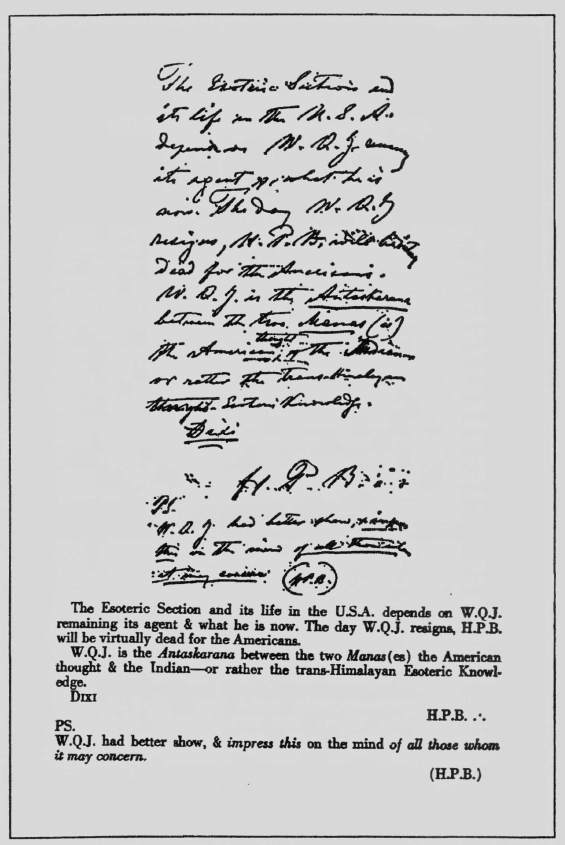 The Esoteric Section and
its life in the U.S.A.
depends on W.Q.J.
its agent & what he is
now. The day W.Q.J
resigns, H.P.B. will be
dead for the Americans.
W.Q.J. is the Antaskarana
between the two Manas(es)
the American thought & the Indian
or rather the trans-Himalayan
Esoteric Knowledge.
Dixi
H.P.B.
PS.
W.Q.J. had better show, & impress
this on the mind of all those
it may concern (H.P.B.)
The Esoteric Section and its life in the U.S.A. depends on W.Q.J.
remaining its agent & what he is now. The day W.Q.J. resigns, H.P.B.
will be virtually dead for the Americans.
W.Q.J. is the Antaskarana between the two Manas(es) the American
thought & the Indian—or rather the trans-Himalayan Esoteric Knowl-
edge.
DIXI
H.P.B. ∴
PS.
W.Q.J. had better show, & impress this on the mind of all those whom
it may concern.
(H.P.B.)